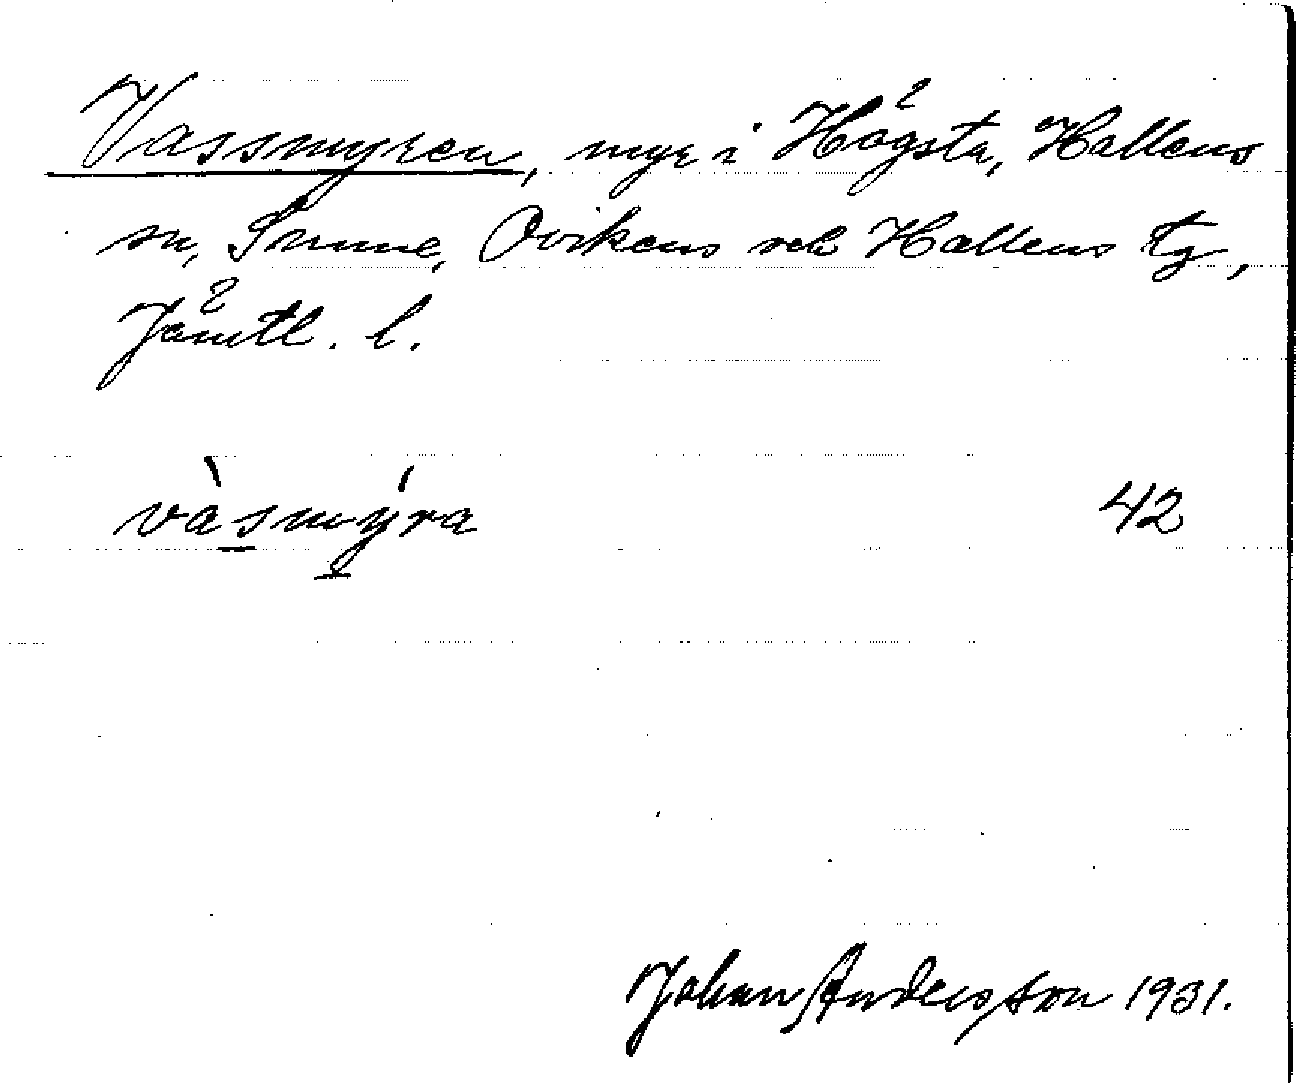 Vassmyren, myr i Högsta, Hallens
sn, Sunne, Ovikens och Hallens tg,
Jämtl. l.
vàsmýra 42
Johan Andersson 1931.